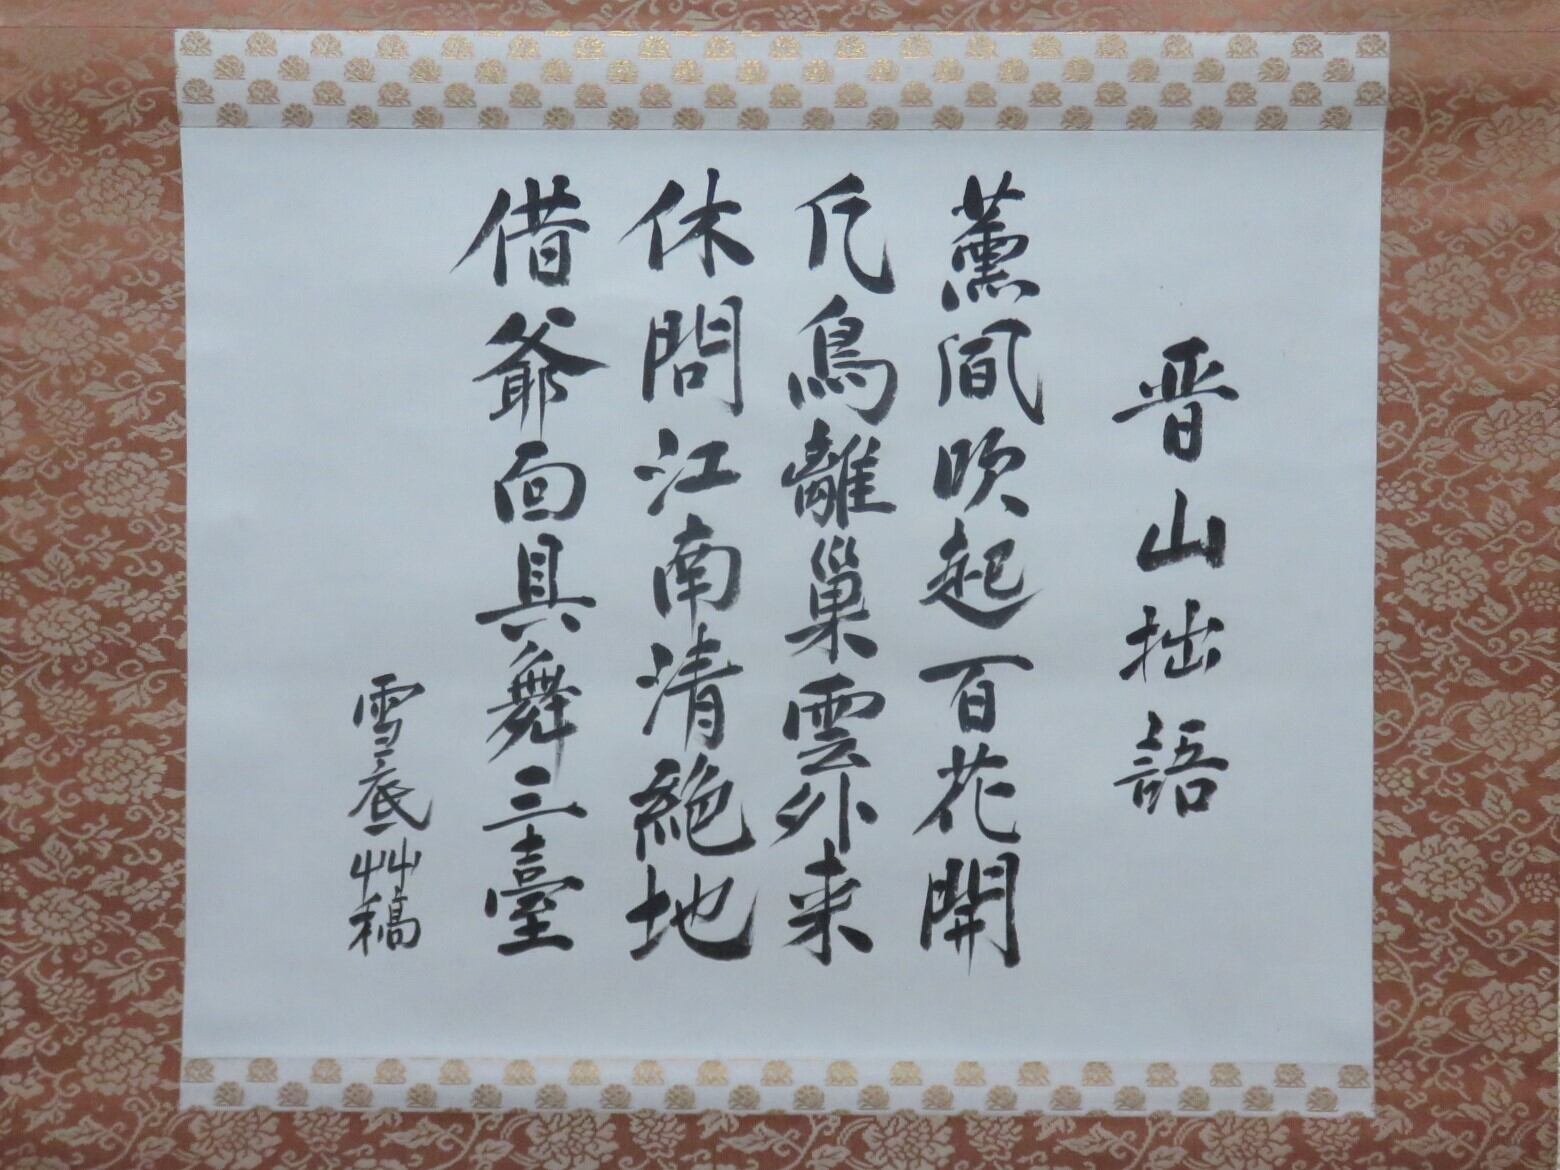 晋山拙語
薫風吹起百花開
凡鳥離巢雲外来
休問江南清絶地
借爺面具舞三臺
雪底艸稿